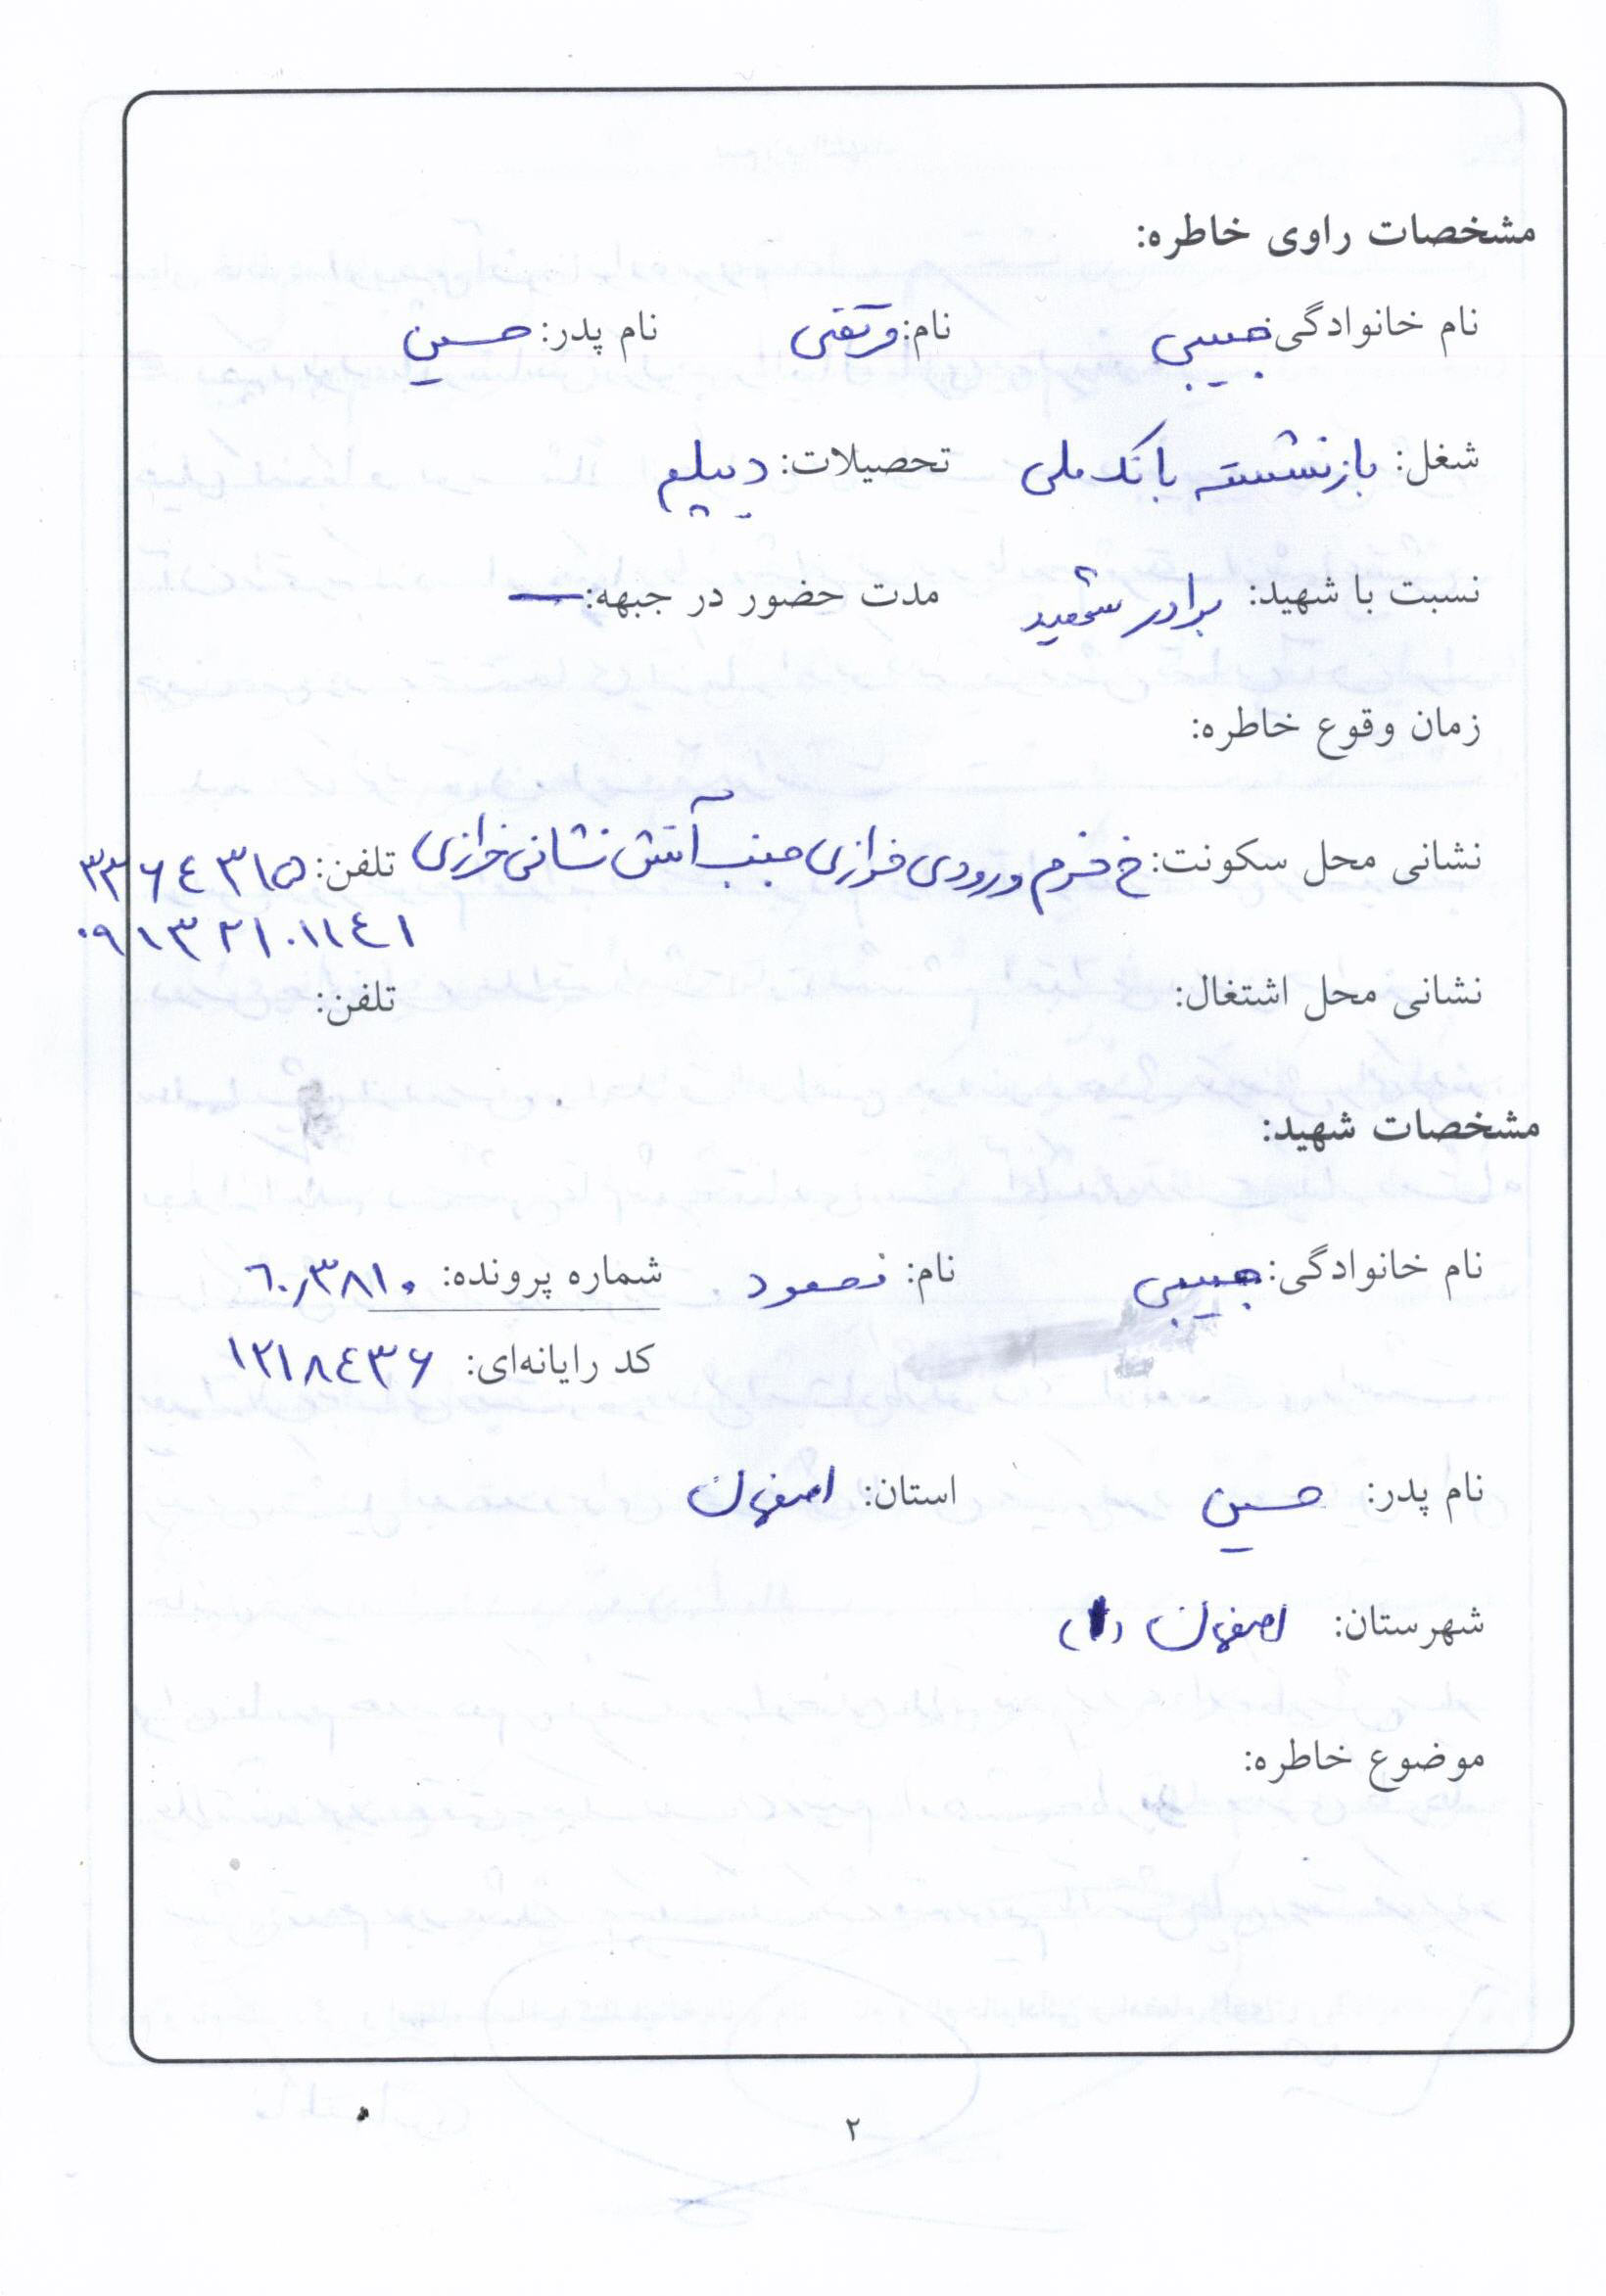 مشخصات راوی خاطره:
نام خانوادگی: حبیبی نام: مرتضی نام پدر: حسین
شغل: بازنشسته بانک ملی تحصیلات: دیپلم
نسبت با شهید: برادر شهید مدت حضور در جبهه: —
زمان وقوع خاطره:
نشانی محل سکونت: خ خرم ورودی خرازی جنب آتش نشانی خرازی تلفن: ۳۳۶۴۳۱۵
۰۹۱۳۲۱۰۱۱۴۱
نشانی محل اشتغال: تلفن:
مشخصات شهید:
نام خانوادگی: حبیبی نام: مسعود شماره پرونده: ۶۰/۳۸۱۰
کد رایانه‌ای: ۱۲۱۸۴۳۶
نام پدر: حسین استان: اصفهان
شهرستان: اصفهان (۱)
موضوع خاطره:
۲